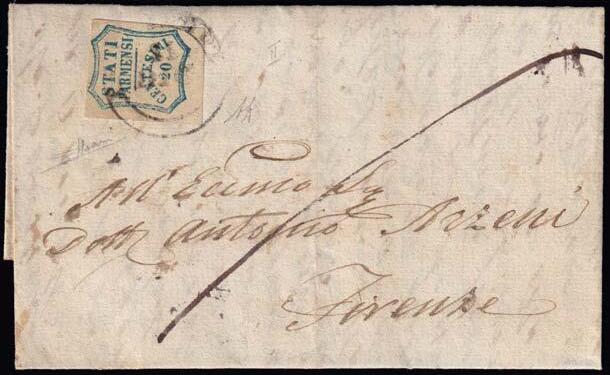 STATI
PARMENSI
CENTESIMI
20
All' Eccmo Sig
Dott Antonio Arzeni
Firenze